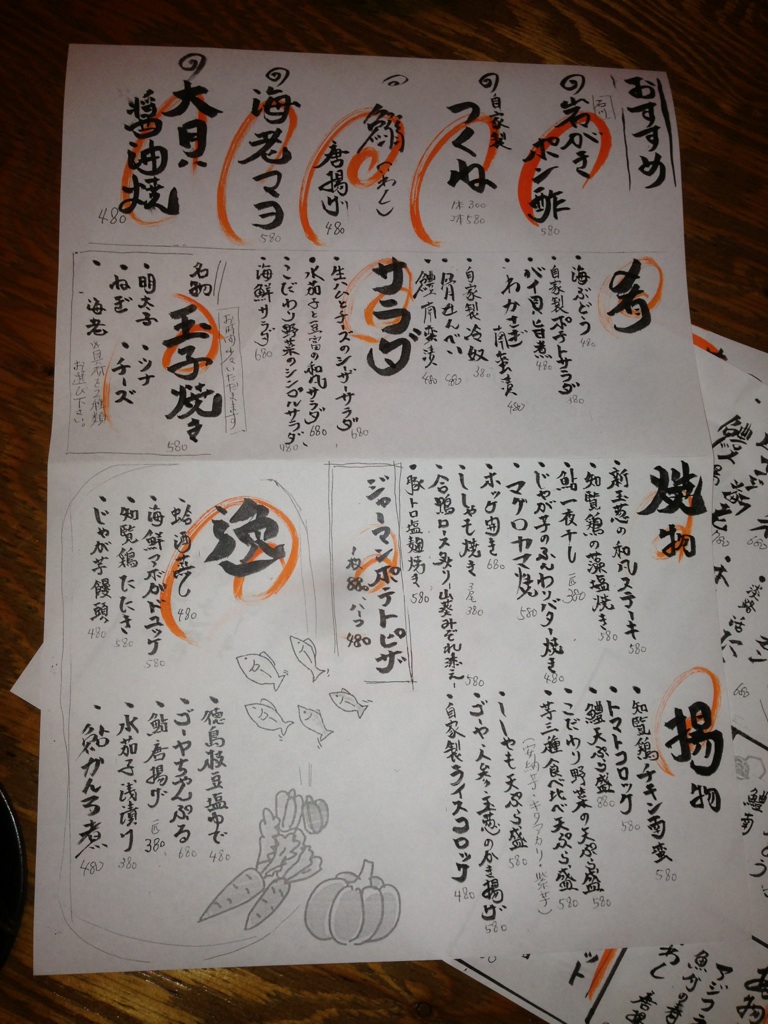 おすすめ
石川
岩がき
ポン酢
580
自家製
つくね
1本 300
2本 580
鰯(いわし)
唐揚げ
480
海老マヨ
580
大貝
醤油焼
480
肴
海ぶどう 480
自家製ポテトサラダ 380
バイ貝旨煮 480
わかさぎ南蛮漬 480
自家製冷奴 380
骨せんべい 480
鱧南蛮漬 480
サラダ
生ハムとチーズのシーザーサラダ 680
水茄子と豆富の和風サラダ 680
こだわり野菜のシンプルサラダ 480
海鮮サラダ 680
お時間いただきます
名物
玉子焼き
580
・明太子 ・ツナ
・ねぎ ・チーズ
・海老
お選び下さい。
焼物
新玉葱の和風ステーキ 580
知覧鶏の藻塩焼き 580
鮎一夜干し 一匹 380
じゃが芋のふんわりバター焼き 480
マグロカマ焼 580
ホッケ開き 680
ししゃも焼き 3尾 380
合鴨ロース炙り〜山葵みぞれ添え〜 580
豚トロ塩麹焼き 580
ジャーマンポテトピザ
一枚 880、ハーフ 480
逸
蛤酒蒸し 480
海鮮アボカドユッケ 580
知覧鶏たたき 580
じゃが芋饅頭 480
揚物
知覧鶏チキン南蛮 580
トマトコロッケ 580
鱧天ぷら盛 880
こだわり野菜の天ぷら盛 580
芋三種食べ比べ天ぷら盛 580
(安納芋・キタアカリ・紫芋)
ししゃも天ぷら盛 580
ゴーヤ・人参・玉葱のかき揚げ 580
自家製ライスコロッケ 480
徳島枝豆塩ゆで 480
ゴーヤちゃんぷる 680
鮎唐揚げ 一匹 380
水茄子浅漬け 380
鮎かんろ煮 480